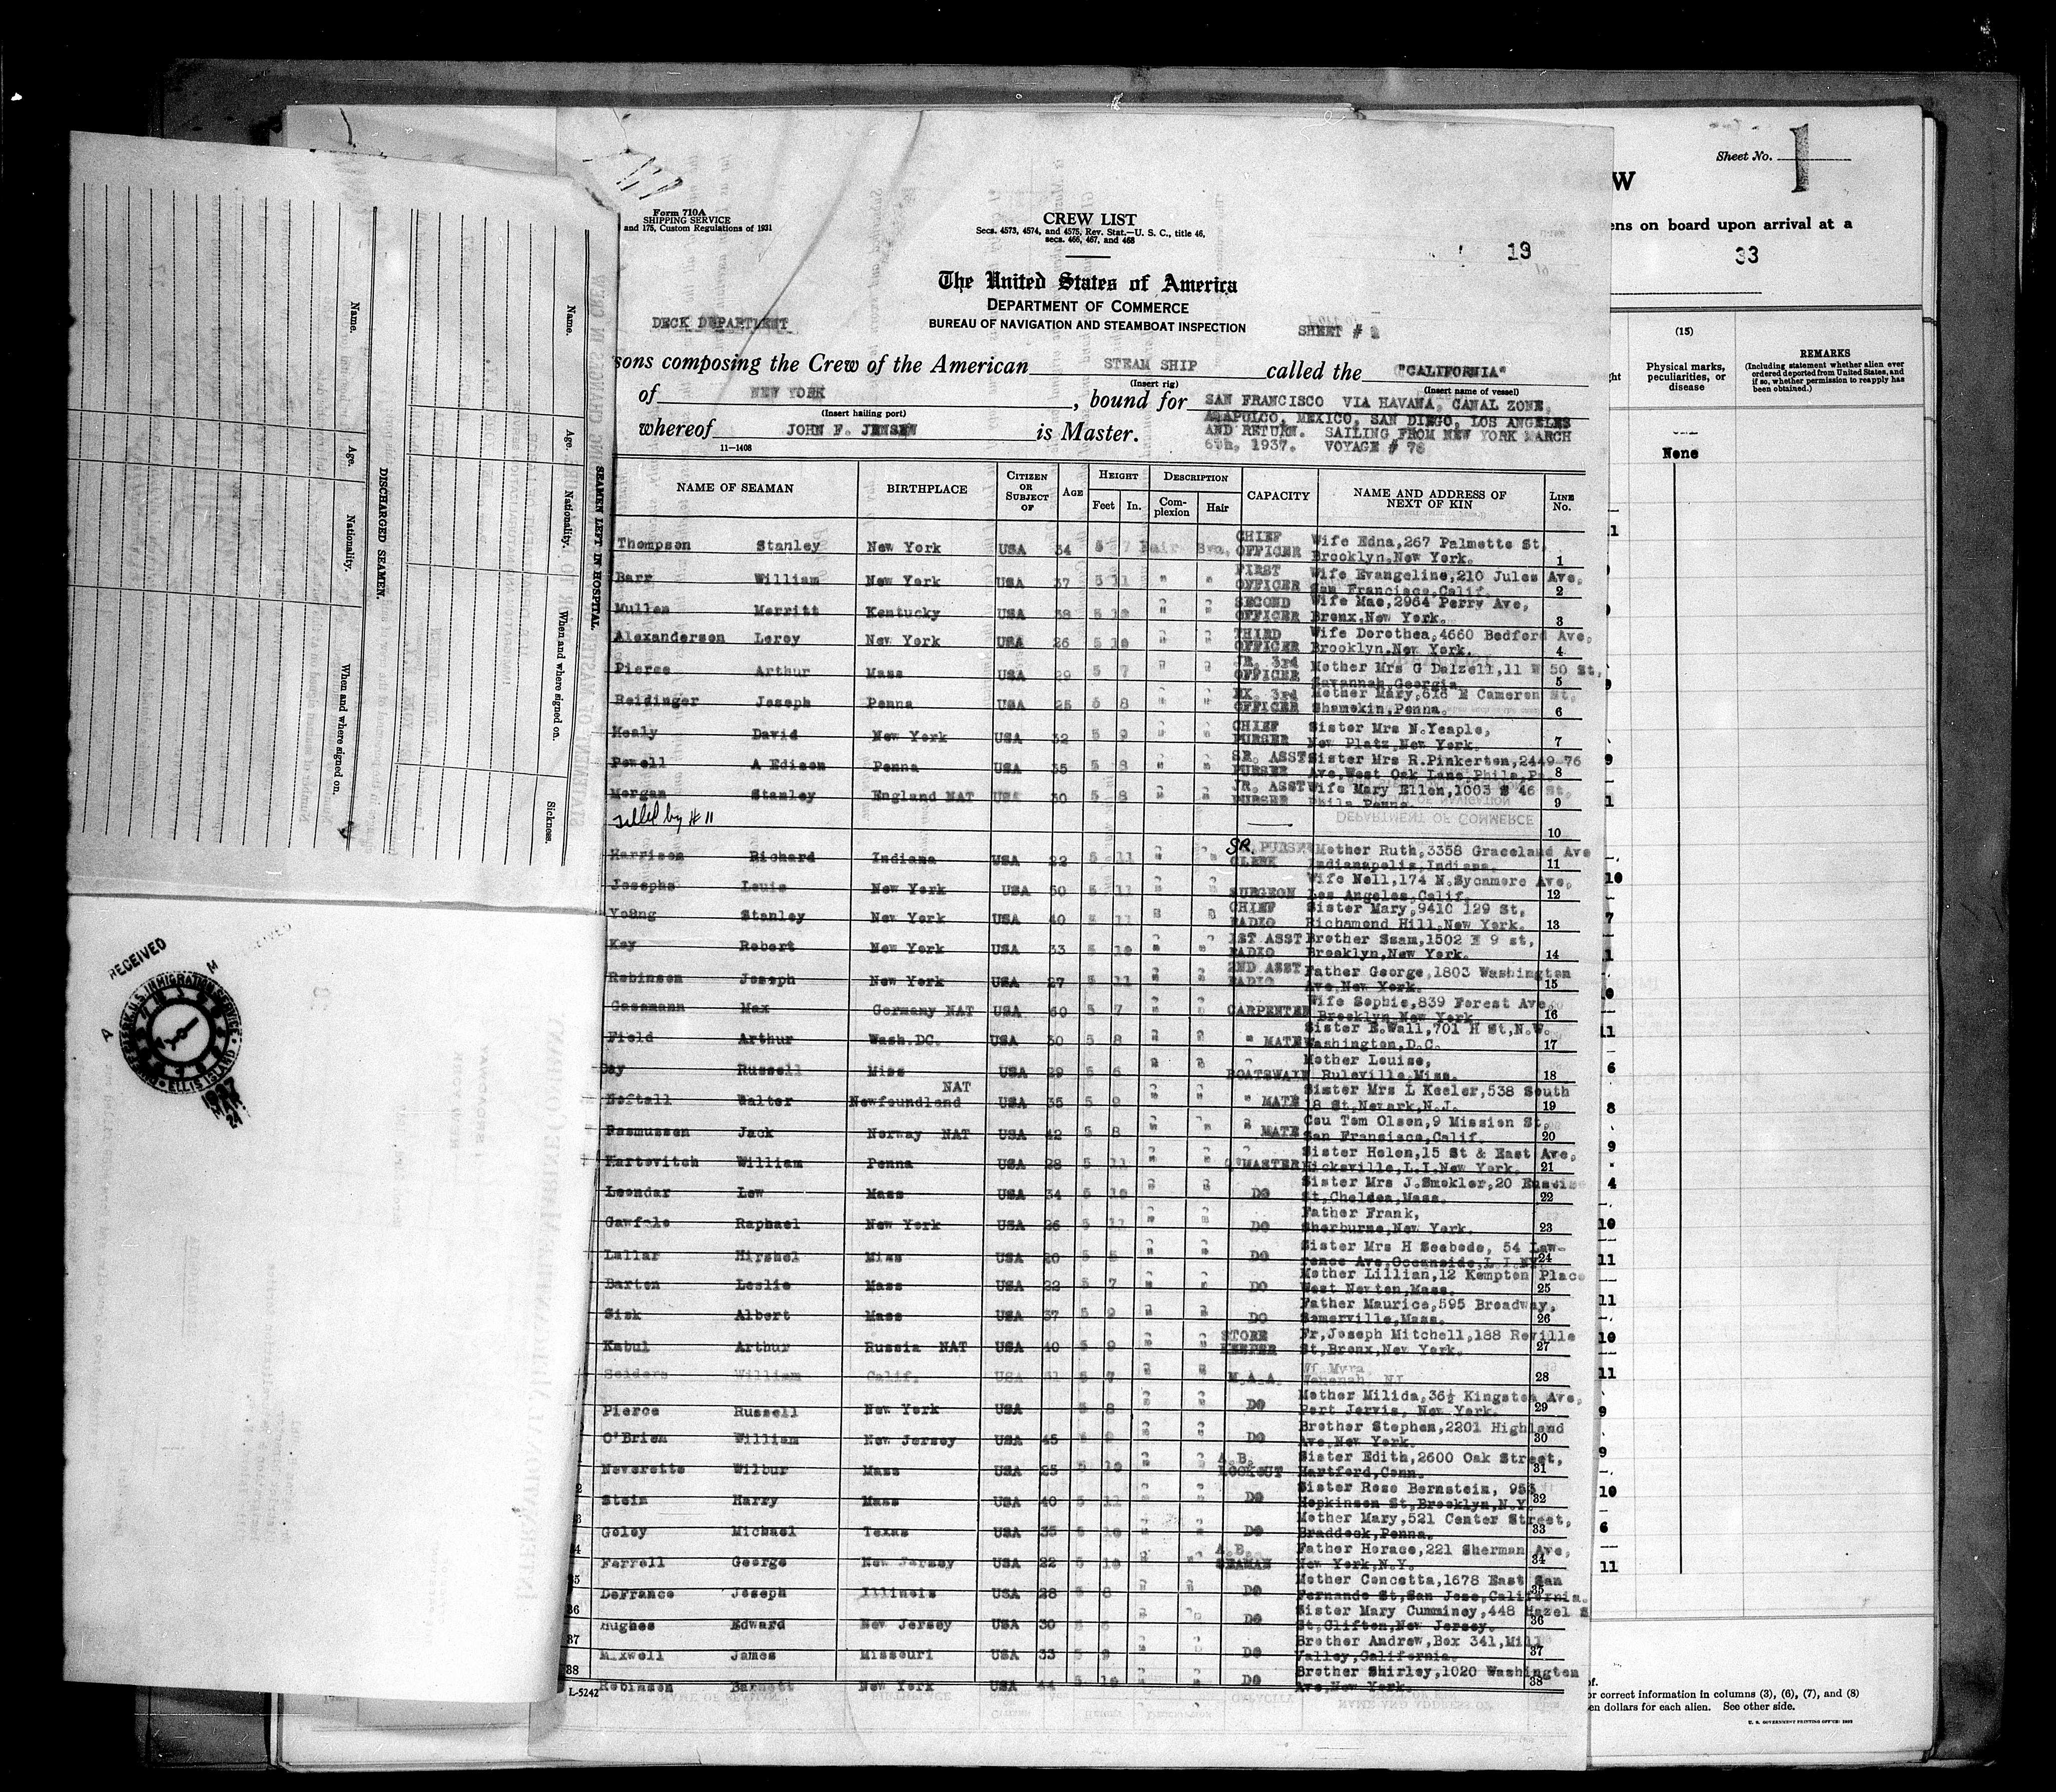 Sheet No. 1
W
ens on board upon arrival at a
33
Form 710A
SHIPPING SERVICE
and 175, Custom Regulations of 1931
CREW LIST
Secs. 4573, 4574, and 4575, Rev. Stat.—U. S. C., title 46,
secs. 466, 467, and 468
19
The United States of America
DEPARTMENT OF COMMERCE
BUREAU OF NAVIGATION AND STEAMBOAT INSPECTION
DECK DEPARTMENT
SHEET #
sons composing the Crew of the American STEAM SHIP called the "CALIFORNIA"
(Insert rig) (Insert name of vessel)
of NEW YORK, bound for SAN FRANCISCO VIA HAVANA, CANAL ZONE,
(Insert hailing port)
ACAPULCO, MEXICO, SAN DIEGO, LOS ANGELES
whereof JOHN F. JENSEN is Master. AND RETURN. SAILING FROM NEW YORK MARCH
11—1408 6th, 1937. VOYAGE # 76
NAME OF SEAMAN BIRTHPLACE CITIZEN OR SUBJECT OF AGE HEIGHT Feet In. DESCRIPTION Complexion Hair CAPACITY NAME AND ADDRESS OF NEXT OF KIN LINE No.
Thompson Stanley New York USA 34 5 7 Fair Brn. CHIEF OFFICER Wife Edna,267 Palmetto St, Brooklyn,New York. 1
Barr William New York USA 37 5 11 " " FIRST OFFICER Wife Evangeline,210 Jules Ave, San Francisco,Calif. 2
Mullen Merritt Kentucky USA 38 5 10 " " SECOND OFFICER Wife Mae,2964 Perry Ave, Bronx,New York. 3
Alexanderson Leroy New York USA 26 5 10 " " THIRD OFFICER Wife Dorothea,4660 Bedford Ave, Brooklyn,New York. 4
Pierce Arthur Mass USA 29 5 7 " " JR. 3rd OFFICER Mother Mrs G Dalzell,11 W 50 St, Savannah,Georgia 5
Reidinger Joseph Penna USA 25 5 8 " " EX. 3rd OFFICER Mother Mary,616 E Cameron St, Shamokin,Penna. 6
Healy David New York USA 32 5 9 " " CHIEF PURSER Sister Mrs N.Yeaple, New Platz,New York. 7
Powell A Edison Penna USA 35 5 8 " " SR. ASST PURSER Sister Mrs R.Pinkerton,2449 76 Ave,West Oak Lane,Phila,Pa. 8
Morgan Stanley England NAT USA 30 5 8 " " JR. ASST PURSER Wife Mary Ellen,1003 S 46 St, Phila Penna. 9
filled by # 11 10
Harrison Richard Indiana USA 22 5 11 " " SR. PURSER CLERK Mother Ruth,3358 Graceland Ave Indianapolis,Indiana. 11
Josephs Louis New York USA 50 5 11 " " SURGEON Wife Nell,174 N.Sycamore Ave, Los Angeles,Calif. 12
Young Stanley New York USA 40 5 11 " " CHIEF RADIO Sister Mary,9410 129 St, Richamond Hill,New York. 13
Kay Robert New York USA 33 5 10 " " 1ST ASST RADIO Brother Ssam,1502 E 9 st, Brooklyn,New York. 14
Robinson Joseph New York USA 27 5 11 " " 2ND ASST RADIO Father George,1803 Washington Ave,New York. 15
Gassmann Max Germany NAT USA 60 5 7 " " CARPENTER Wife Sophie,839 Forest Ave Brooklyn,New York 16
Field Arthur Wash.DC. USA 30 5 8 " " " MATE Sister E.Wall,701 H St,N.W. Washington,D.C. 17
Day Russell Miss USA 29 5 6 " " BOATSWAIN Mother Louise, Ruleville,Miss. 18
Neftall Walter Newfoundland NAT USA 35 5 9 " " " MATE Sister Mrs L Keeler,538 South 18 St,Newark,N.J. 19
Rasmussen Jack Norway NAT USA 42 5 8 " " " MATE Cou Tom Olsen,9 Mission St, San Fransisco,Calif. 20
Kartovitch William Penna USA 28 5 11 " " Q'MASTER Sister Helen,15 St & East Ave, Hicksville,L.I.New York. 21
Leondar Lew Mass USA 34 5 10 " " DO Sister Mrs J.Smokler,20 St,Chelsea,Mass. 22
Gawfale Raphael New York USA 26 5 11 " " DO Father Frank, Sherburne,New York. 23
Lallar Hirshel Miss USA 20 5 5 " " DO Sister Mrs H Seabode, 54 Lawrence Ave,Oceanside,L.I.NY. 24
Barton Leslie Mass USA 22 5 7 " " DO Mother Lillian,12 Kempton Place West Newton,Mass. 25
Sisk Albert Mass USA 37 5 9 " " DO Father Maurice,595 Broadway, Somerville,Mass. 26
Kabul Arthur Russia NAT USA 40 5 9 " " STORE KEEPER Fr,Joseph Mitchell,188 Reville St,Bronx,New York. 27
Seiders William Calif. USA 51 5 7 " " M.A.A. Wf Myra NJ 28
Pierce Russell New York USA 5 8 " " DO Mother Milida,36½ Kingston Ave, Port Jervis, New York. 29
O'Brien William New Jersey USA 45 5 9 " " DO Brother Stephen,2201 Highland Ave,New York. 30
Neverette Wilbur Mass USA 25 5 10 " " A.B. LOOKOUT Sister Edith,2600 Oak Street, Hartford,Conn. 31
Stein Harry Mass USA 40 5 11 " " DO Sister Rose Bernstein, 953 Hopkinson St,Brooklyn,N.Y. 32
Goley Michael Texas USA 35 5 10 " " DO Mother Mary,521 Center Street, Braddock,Penna. 33
Farrell George New Jersey USA 22 5 10 " " A.B. SEAMAN Father Horace,221 Sherman Ave, New York,N.Y. 34
DeFrance Joseph Illinois USA 28 5 8 " " DO Mother Concetta,1678 East San Fernando St,San Jose,California. 35
Hughes Edward New Jersey USA 30 5 6 " " DO Sister Mary Cumminey,448 Hazel St,Clifton,New Jersey. 36
Maxwell James Missouri USA 33 5 9 " " DO Brother Andrew,Box 341,Mill Valley,California. 37
Robinson Barnett New York USA 44 5 10 " " DO Brother Shirley,1020 Washington Ave,New York. 38
L-5242
(15)
Physical marks, peculiarities, or disease
REMARKS
(Including statement whether alien ever ordered deported from United States, and if so, whether permission to reapply has been obtained.)
None
or correct information in columns (3), (6), (7), and (8)
en dollars for each alien. See other side.
U. S. GOVERNMENT PRINTING OFFICE
SEAMEN LEFT IN HOSPITAL
Name. Age. Nationality. When and where signed on. Sickness.
DISCHARGED SEAMEN.
Name. Age. Nationality. When and where signed on.
RECEIVED
U.S. IMMIGRATION SERVICE
ELLIS ISLAND